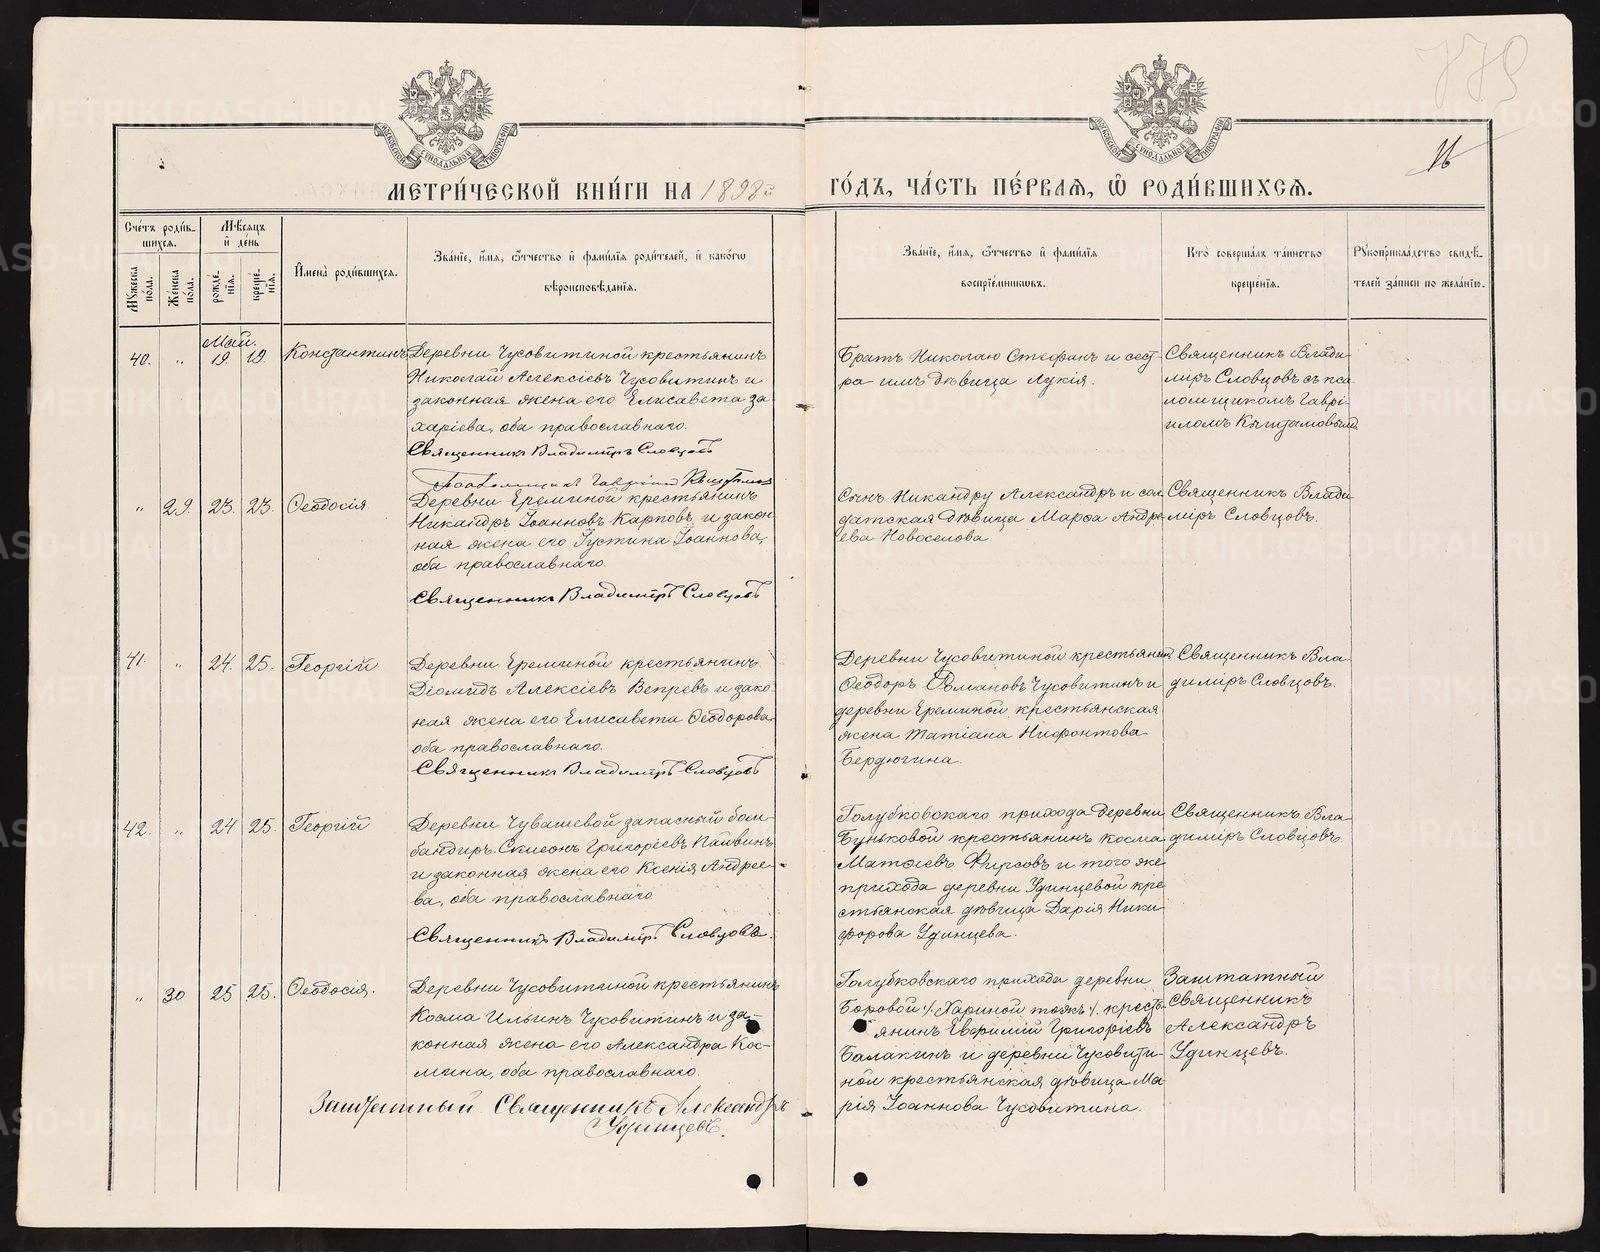 779
16
МЕТРИ́ЧЕСКОЙ КНИ́ГИ НА 1898й ГО́ДЪ, ЧА́СТЬ ПЕ́РВАѦ, Ѽ РОДИ́ВШИХСѦ.
Сче́тъ роди́в-
шихсѧ.
Мѣ́сѧцъ
и҆ де́нь
Мꙋ́жеска по́ла.
Же́нска по́ла.
рожде́-
нїѧ.
креще́-
нїѧ.
И҆мена̀ роди́вшихсѧ.
Зва́нїе, и҆́мѧ, ѻ҆́тчество и҆ фами́лїѧ роди́телей, и҆ како́гѡ
вѣроисповѣ́данїѧ.
Зва́нїе, и҆́мѧ, ѻ҆́тчество и҆ фами́лїѧ
воспрїе́мникѡвъ.
Кто̀ соверша́лъ та́инство
креще́нїѧ.
Рꙋкоприкла́дство свидѣ́-
телей за́писи по жела́нїю.
Май.
40. „ 19. 19 Константинъ
Деревни Чусовитиной крестьянинъ
Николай Алексіевъ Чусовитинъ и
законная жена его Елисавета За
харіева, оба православнаго.
Священникъ Владимиръ Словцовъ
Братъ Николаю Стефанъ и сест-
ра имъ дѣвица Лукія.
Священникъ Влади-
миръ Словцовъ съ пса
ломщикомъ Гаврі-
иломъ
„ 29. 23. 23. Ѳеодосія
Деревни Ереминой крестьянинъ
Никандръ Іоанновъ Карповъ и закон
ная жена его Іустина Іоаннова,
оба православнаго.
Священникъ Владимиръ Словцовъ
Сынъ Никандру Александръ и сол
датская дѣвица Марѳа Андре
ева Новоселова
Священникъ Влади
миръ Словцовъ.
41. „ 24. 25. Георгій
Деревни Ереминой крестьянинъ
Діомидъ Алексіевъ Вепревъ и зако-
ная жена его Елисавета Ѳеодорова
оба православнаго.
Священникъ Владимиръ Словцовъ
Деревни Чусовитиной крестьянинъ
Ѳеодоръ Романовъ Чусовитинъ и
деревни Ереминой крестьянская
жена Татіана Нифонтова
Бердюгина.
Священникъ Вла-
димиръ Словцовъ.
42. „ 24 25. Георгій
Деревни Чувашевой запасный бом-
бандиръ Симеонъ Григоріевъ Пайвинъ
и законная жена его Ксенія Андрее-
ва, оба православнаго
Священникъ Владимиръ Словцовъ.
Голубковскаго прихода деревни
Буньковой крестьянинъ Косма
Матѳіевъ Фирсовъ и того же
прихода деревни Удинцевой кре
стьянская дѣвица Дарія Ники
форова Удинцева.
Священникъ Вла-
димиръ Словцовъ.
„ 30 25 25. Ѳеодосія.
Деревни Чусовитиной крестьянинъ
Косма Ильинъ Чусовитинъ и за-
конная жена его Александра Кос-
мина, оба православнаго.
Заштатный Священникъ Александръ
Удинцевъ.
Голубковскаго прихода деревни
Боровой /. Хариной тожъ /. кресть
янинъ Евфимій Григоріевъ
Балакинъ и деревни Чусовити-
ной крестьянская дѣвица Ма
рія Іоаннова Чусовитина.
Заштатный
Священникъ
Александръ
Удинцевъ.